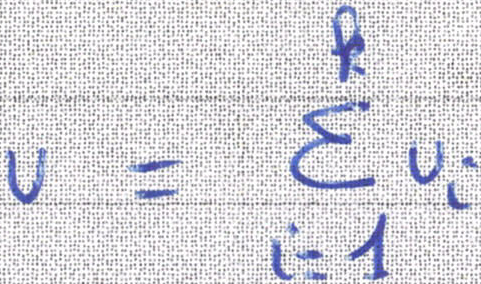 $v = \sum_{i=1}^{k} v_i$